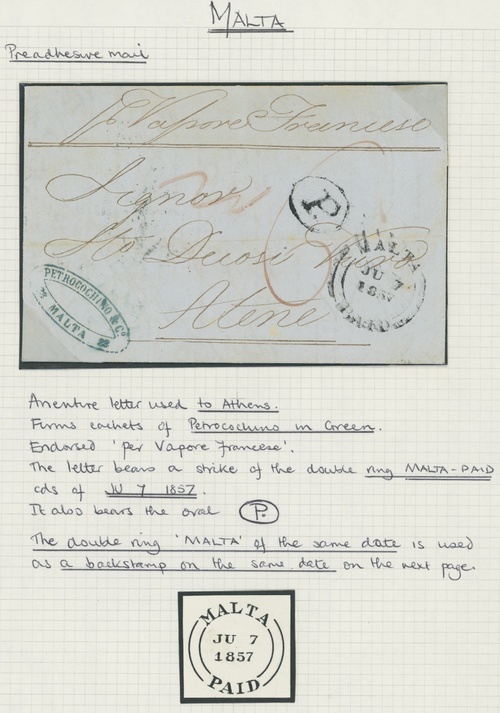 MALTA
Preadhesive mail
p Vapore Francese
Signor
P.
MALTA
JU 7
1857
PETROCOCHINO & Co
MALTA
Atene
An entire letter used to Athens.
Firms cachets of Petrocochino in Green.
Endorsed 'per Vapore Francese'.
The letter bears a strike of the double ring MALTA-PAID
cds of JU 7 1857.
It also bears the oval P.
The double ring 'MALTA' of the same date is used
as a backstamp on the same date on the next page.
MALTA
JU 7
1857
PAID